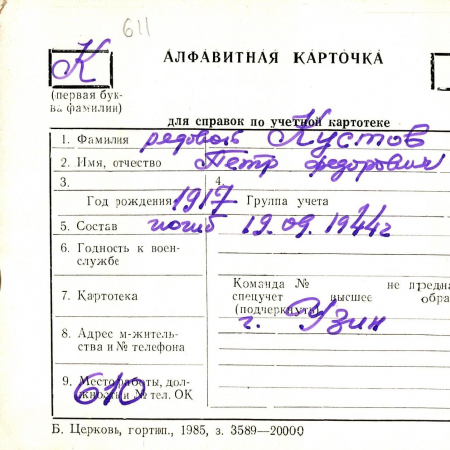 611
АЛФАВИТНАЯ КАРТОЧКА
К
(первая бук-
ва фамилии)
для справок по учетной картотеке
1. Фамилия рядовой Кустов
2. Имя, отчество Петр Федорович
3. 4.
Год рождения 1917 Группа учета
5. Состав погиб 19.09.1944г
6. Годность к воен-
службе
Команда № не предна
7. Картотека спецучет высшее обра
(подчеркнуть)
г. Узин
8. Адрес м-житель-
ства и № телефона
9. Место работы, дол-
жность и № тел. ОК
610
Б. Церковь, гортип., 1985, з. 3589—20000